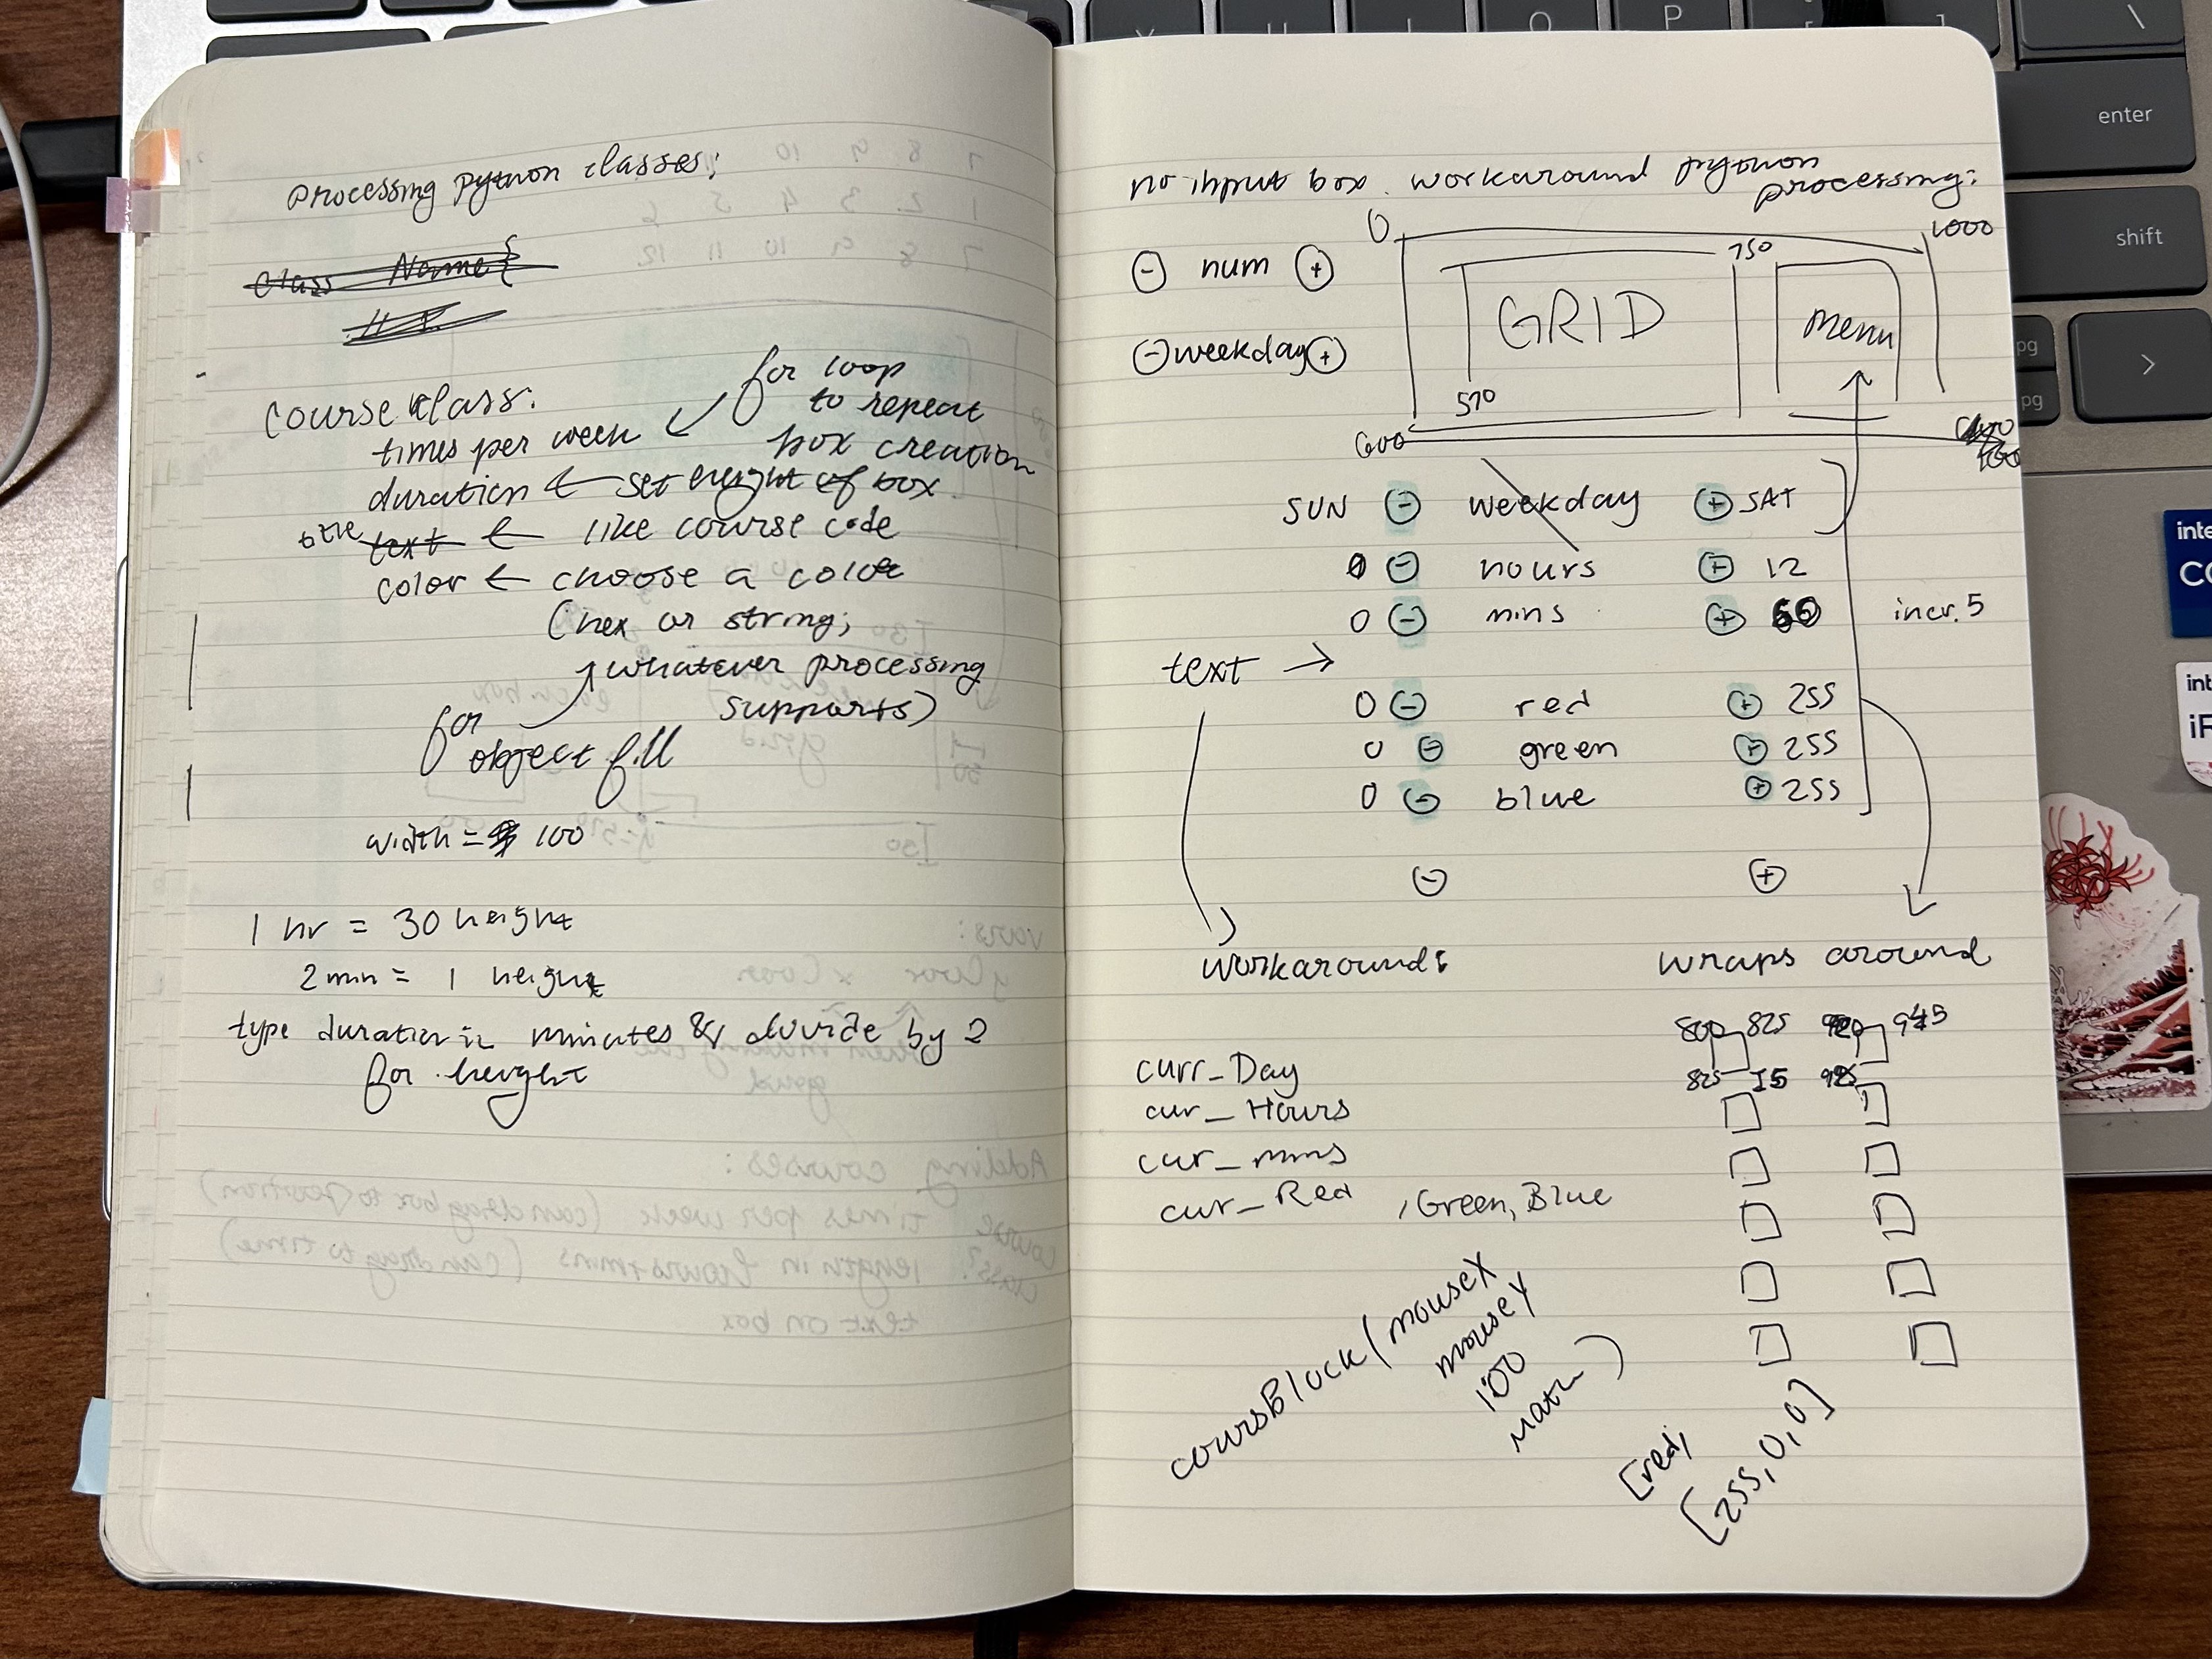 processing python classes:
class Name {
course class:
for loop
to repeat
box creation
times per week
duration ← set height of box
title text ← like course code
color ← choose a color
(hex or string;
whatever processing
supports)
for
object fill
width = 100
1 hr = 30 height
2 min = 1 height
type duration in minutes & divide by 2
for height
no input box. workaround python
processing:
0
1000
- num +
750
GRID
menu
- weekday +
570
600
SUN - weekday + SAT
0 - hours + 12
0 - mins + 60
incr. 5
text →
0 - red + 255
0 - green + 255
0 - blue + 255
- +
workaround:
wraps around
800 825 945
825 15
curr_Day
cur_Hours
cur_mins
cur_Red , Green, Blue
coursBlock (mouseX
mouseY
100
Math )
[red,
[255, 0, 0]
\
enter
shift
pg
pg
>
O
P
]